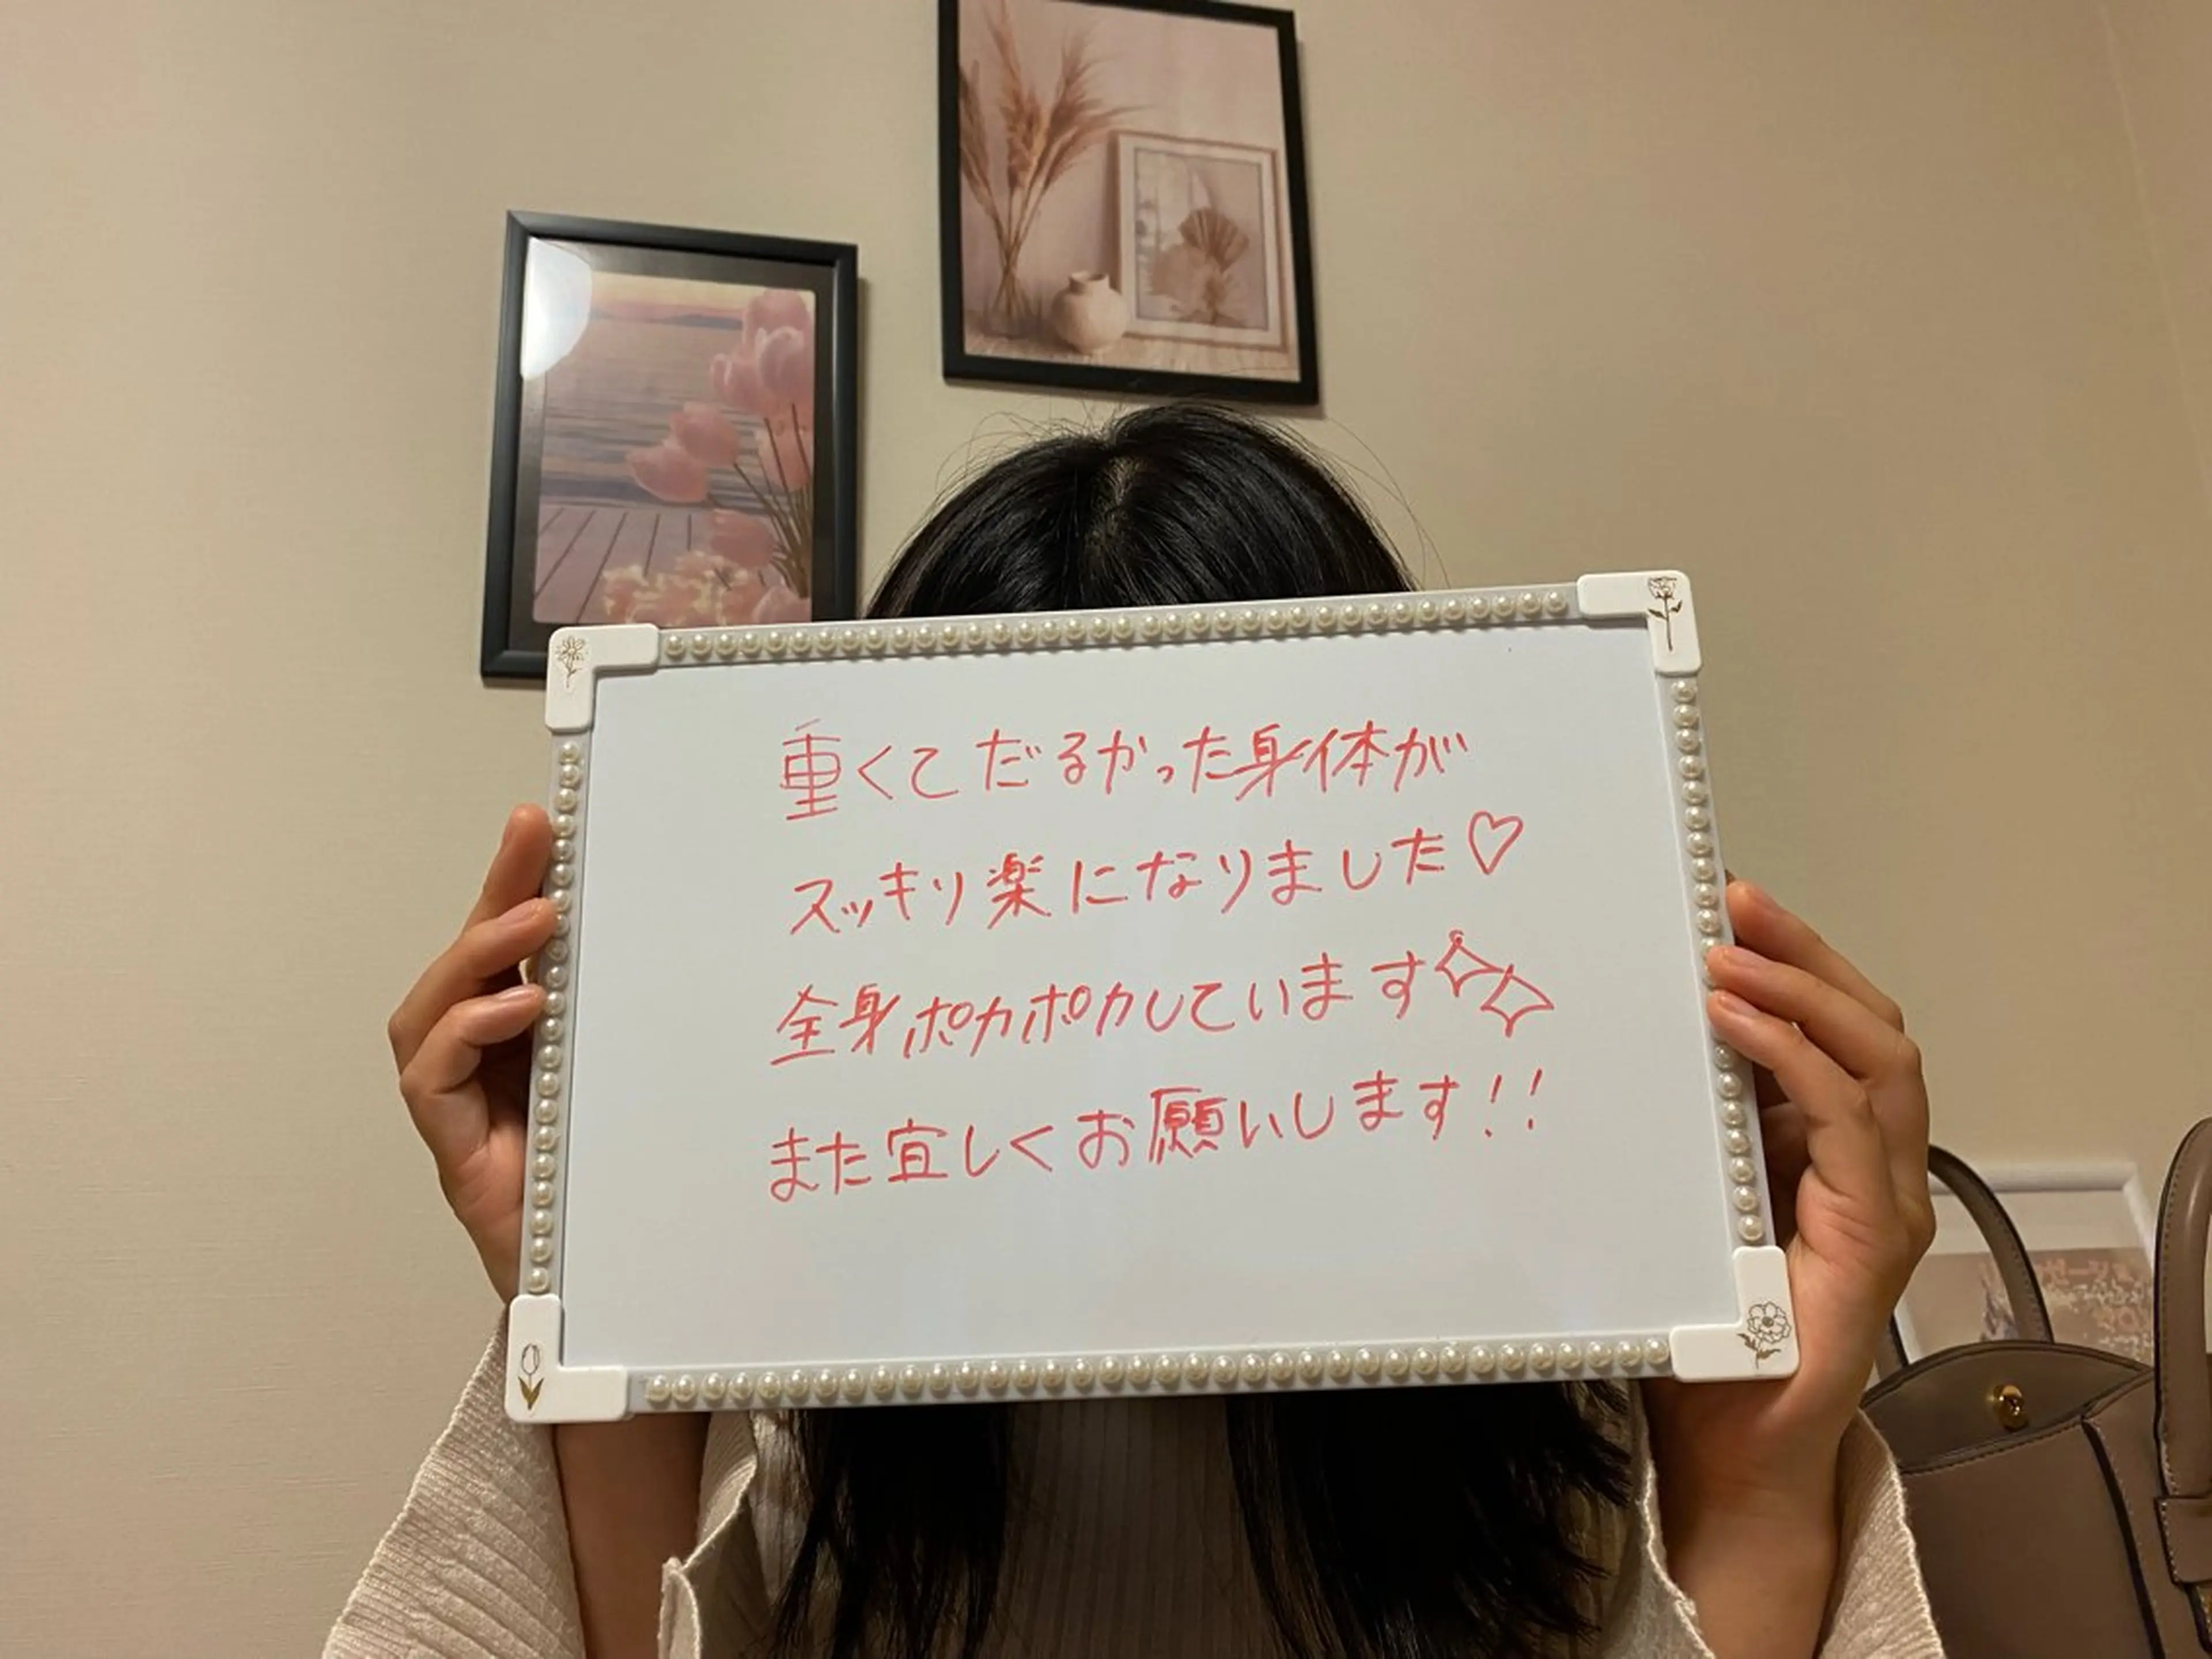 重くてだるかった身体が
スッキリ楽になりました♡
全身ポカポカしています
また宜しくお願いします!!